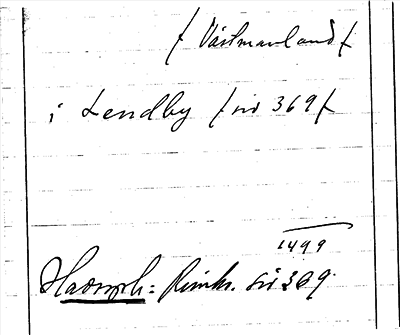 / Västmanland /
i Lendby / sid 369 /
1499
Hadorph: Rimkr. sid 369.